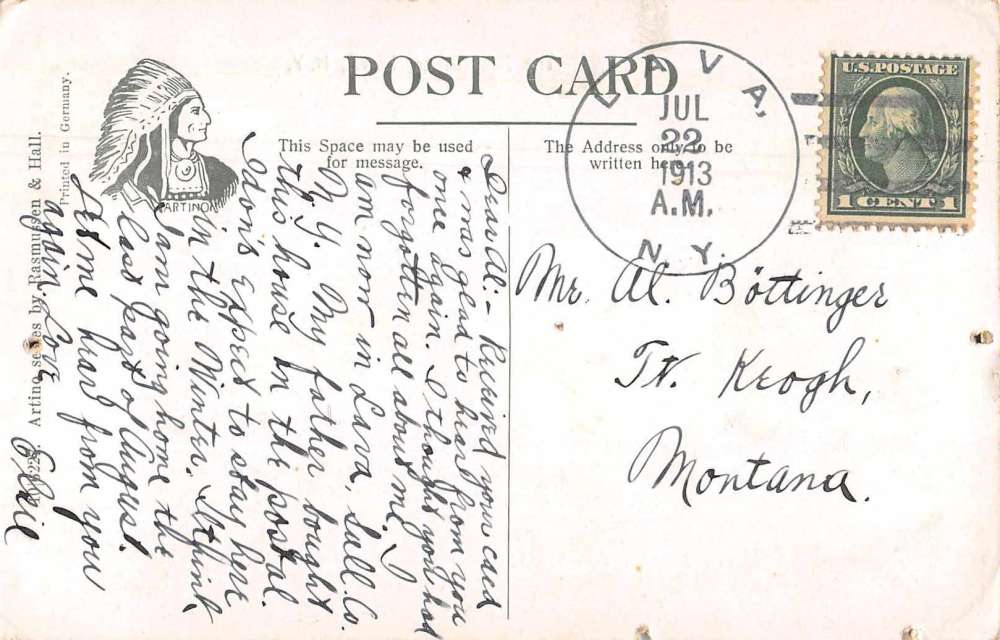 POST CARD
This Space may be used
for message.
The Address only to be
written here.
ARTINO
Printed in Germany.
Artino series by Rasmussen & Hall.
LAVA,
JUL
22
1913
A.M.
N.Y.
U.S. POSTAGE
1 CENT 1
Dear Al:- Received your card
& was glad to hear from you
once again. I thought you had
forgotten all about me. I
am now in Lava, Sull. Co.
N.Y. My father bought
this house on the postal.
I don't expect to stay here
in the Winter. I think
I am going home the
last part of August.
Let me hear from you
again. Love
Elsie
Mr. Al. Böttinger
Ft. Keogh,
Montana.